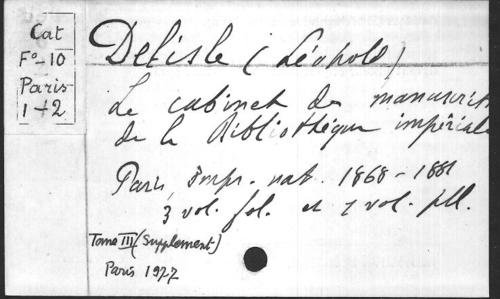 Cat
F°-10
Paris
1+2
Delisle (Léopold)
Le cabinet des manuscrits
de la Bibliothèque impériale
Paris, Impr. nat. 1868-1881
3 vol. fol. et 1 vol. pll.
Tome III (Supplement)
Paris 1977